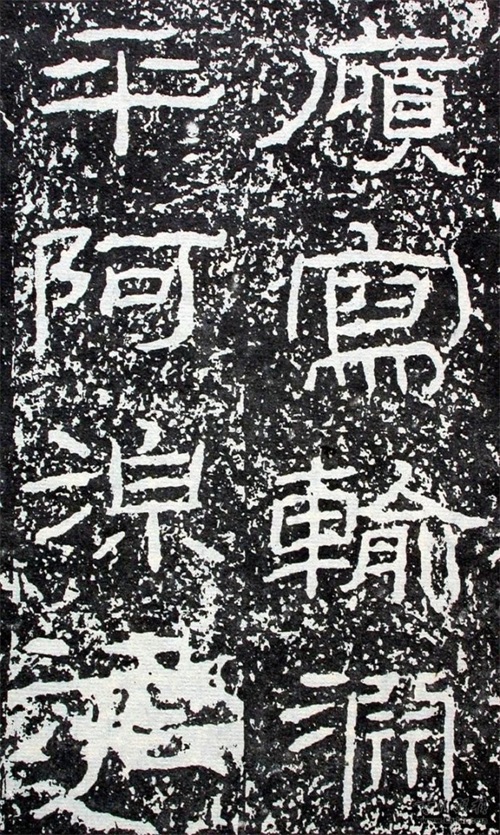 廎寫輸淵
平阿湶泥